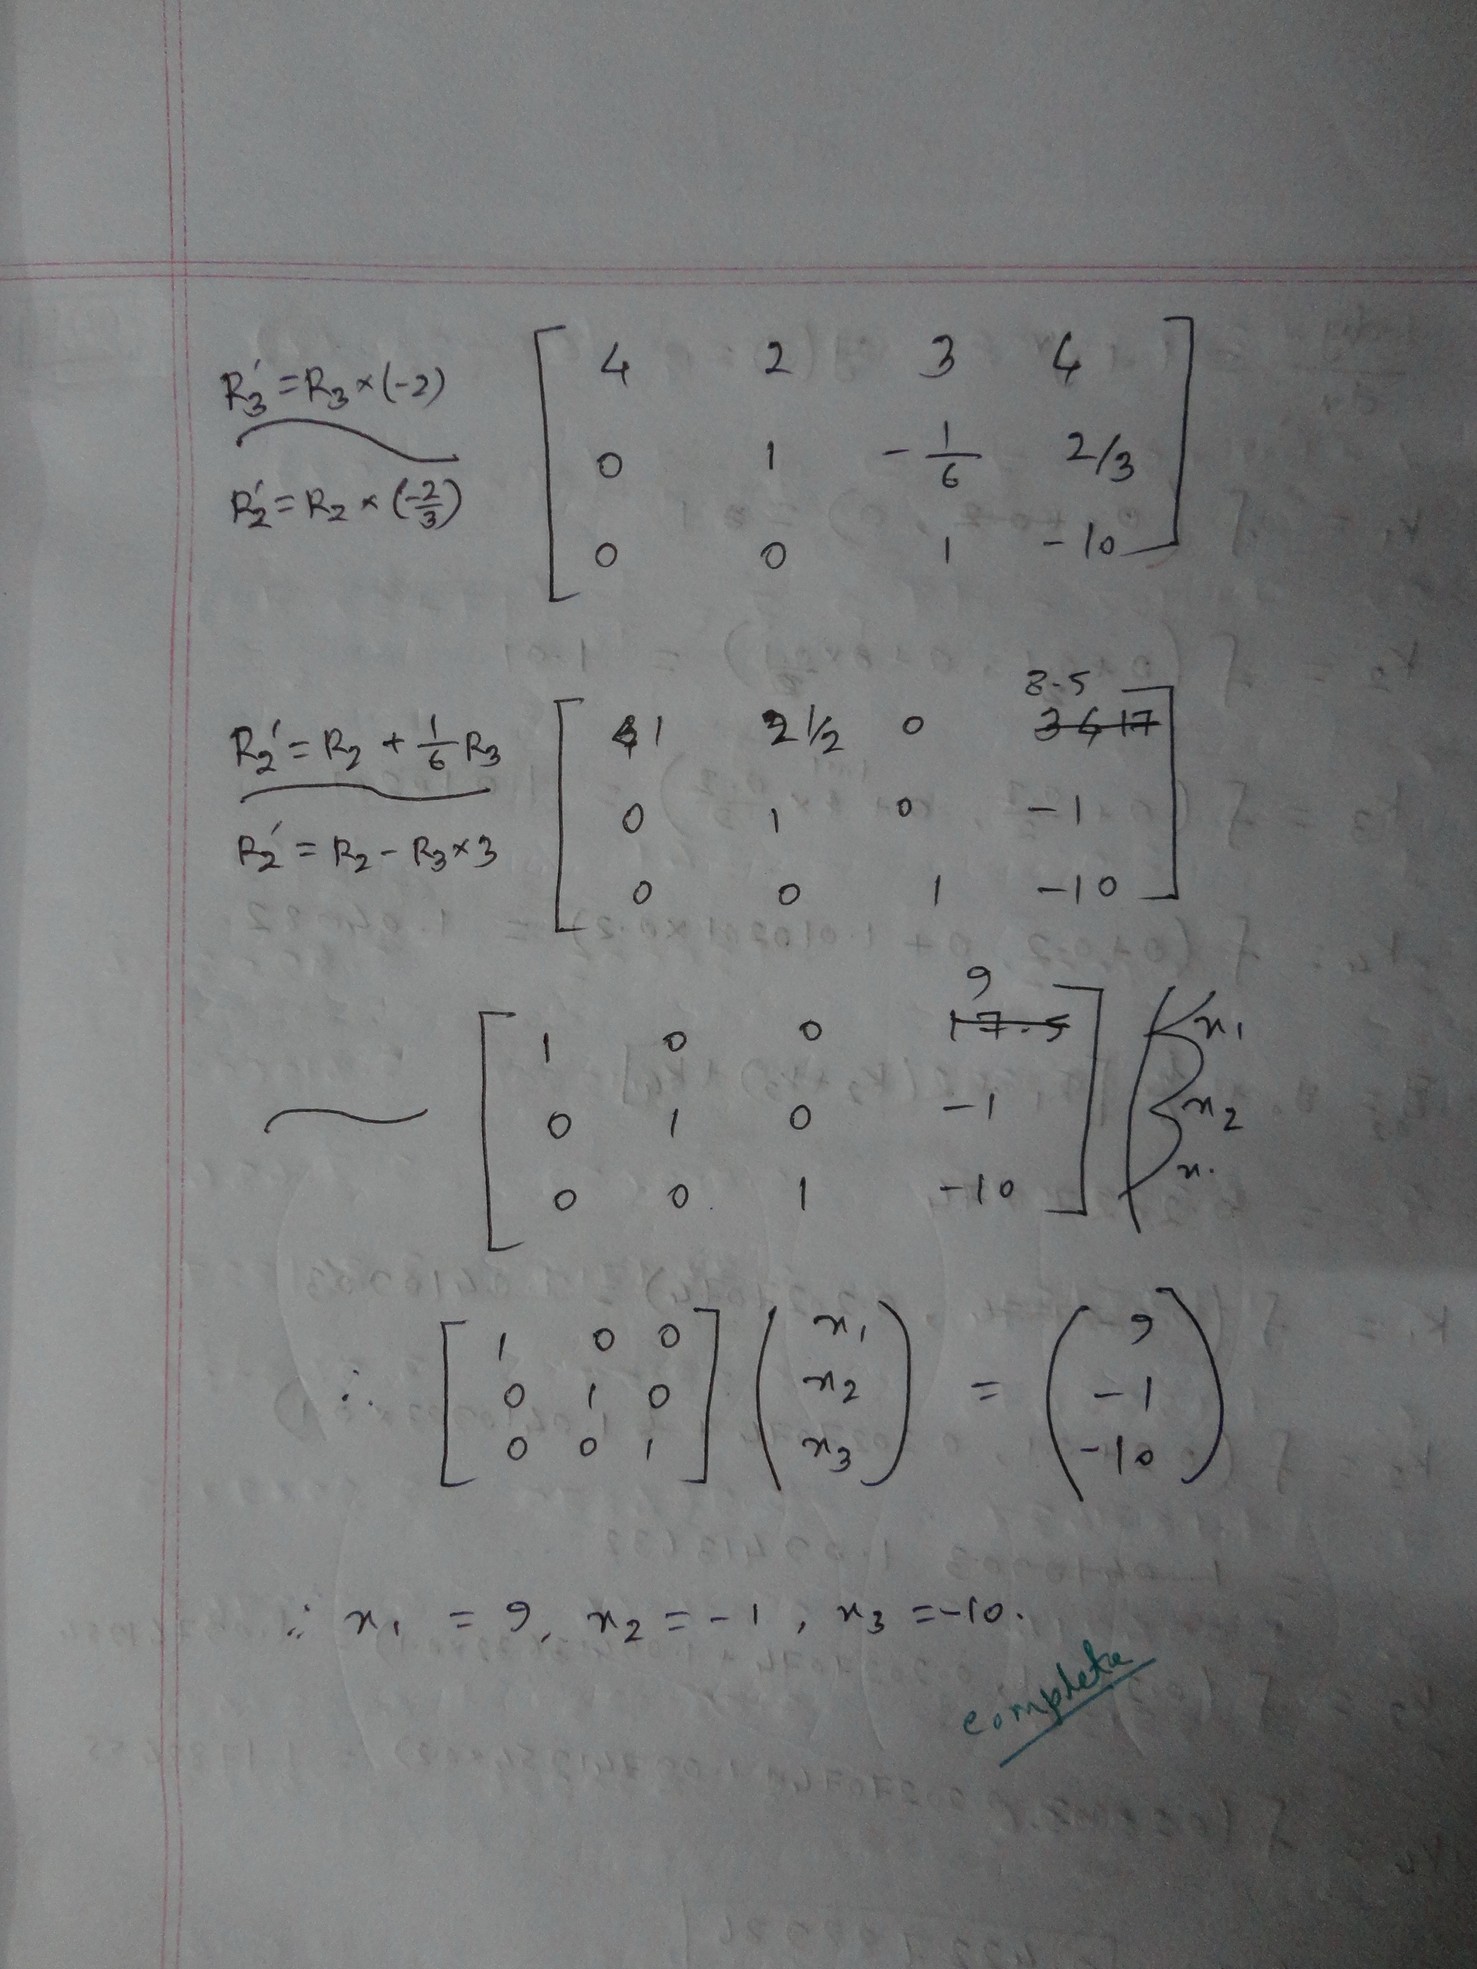 R₃' = R₃ × (-2)
R₂' = R₂ × (-2/3)
[ 4 2 3 4
0 1 -1/6 2/3
0 0 1 -10 ]
R₂' = R₂ + 1/6 R₃
R₂' = R₂ - R₃ × 3
8.5
[ 1 1/2 0 34 17
0 1 0 -1
0 0 1 -10 ]
9
~ [ 1 0 0 17.5
0 1 0 -1
0 0 1 -10 ] ( x₁
x₂
x.
∴ [ 1 0 0 ] ( x₁ ) = ( 9 )
[ 0 1 0 ] ( x₂ ) = ( -1 )
[ 0 0 1 ] ( x₃ ) = ( -10 )
∴ x₁ = 9, x₂ = -1, x₃ = -10.
complete